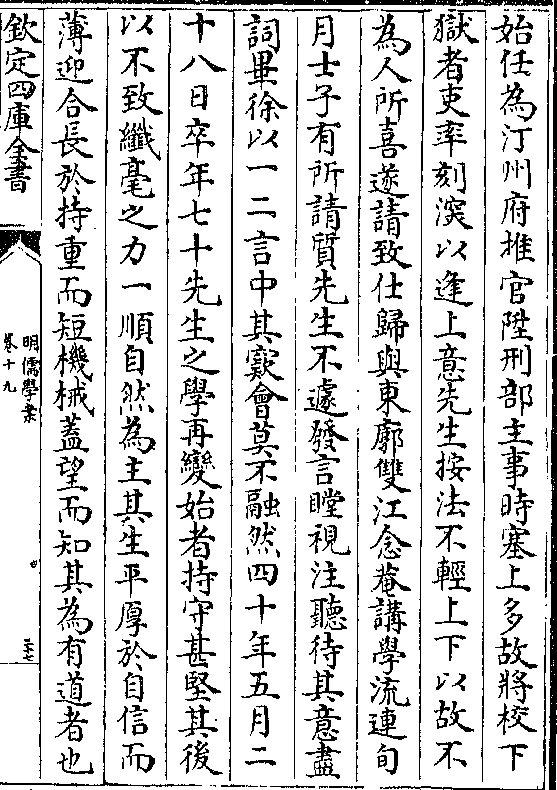 始任為汀州府推官陞刑部主事時塞上多故將校下
獄者吏率刻深以逢上意先生按法不輕上下以故不
為人所喜遂請致仕歸與東廓雙江念菴講學流連旬
月士子有所請質先生不遽發言瞠視注聽待其意盡
詞畢徐以一二言中其窾會莫不融然四十年五月二
十八日卒年七十先生之學再變始者持守甚堅其後
以不致纖毫之力一順自然為主其生平厚於自信而
薄迎合長於持重而短機械蓋望而知其為有道者也
欽定四庫全書
明儒學案
卷十九
二十七